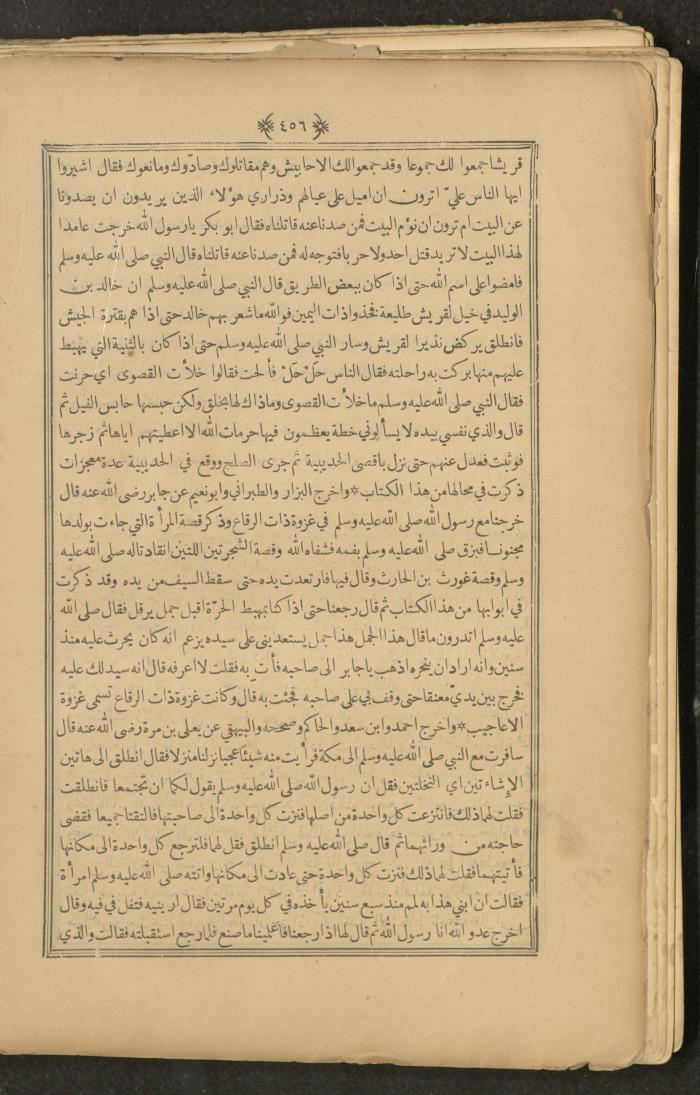 ٤٥٦
قريشا جمعوا لك جموعا وقد جمعوا لك الاحابيش وهم مقاتلوك وصادّوك ومانعوك فقال اشيروا
ايها الناس عليّ اترون ان اميل على عيالهم وذراري هؤلاء الذين يريدون ان يصدونا
عن البيت ام ترون ان نؤم البيت فمن صدنا عنه قاتلناه فقال ابو بكر يارسول الله خرجت عامدا
لهذا البيت لا تريد قتل احد ولا حربا فتوجه له فمن صدنا عنه قاتلناه قال النبي صلى الله عليه وسلم
فامضوا على اسم الله حتى اذا كان ببعض الطريق قال النبي صلى الله عليه وسلم ان خالد بن
الوليد في خيل لقريش طليعة فخذوا ذات اليمين فوالله ما شعر بهم خالد حتى اذا هم بقترة الجيش
فانطلق يركض نذيرا لقريش وسار النبي صلى الله عليه وسلم حتى اذا كان بالثنية التي يهبط
عليهم منها بركت به راحلته فقال الناس حَلْ حَلْ فألحت فقالوا خلأت القصوى اي حرنت
فقال النبي صلى الله عليه وسلم ما خلأت القصوى وما ذاك لها بخلق ولكن حبسها حابس الفيل ثم
قال والذي نفسي بيده لا يسألوني خطة يعظمون فيها حرمات الله الا اعطيتهم اياها ثم زجرها
فوثبت فعدل عنهم حتى نزل باقصى الحديبية ثم جرى الصلح ووقع في الحديبية عدة معجزات
ذكرت في محالها من هذا الكتاب * واخرج البزار والطبراني وابو نعيم عن جابر رضى الله عنه قال
خرجنا مع رسول الله صلى الله عليه وسلم في غزوة ذات الرقاع وذكر قصة المرأة التي جاءت بولدها
مجنونا فبزق صلى الله عليه وسلم بفمه فشفاه الله وقصة الشجرتين اللتين انقادتا له صلى الله عليه
وسلم وقصة غورث بن الحارث وقال فيها فارتعدت يده حتى سقط السيف من يده وقد ذكرت
في ابوابها من هذا الكتاب ثم قال رجعنا حتى اذا كنا بمهبط الحرّة اقبل جمل يرقل فقال صلى الله
عليه وسلم اتدرون ما قال هذا الجمل هذا جمل يستعديني على سيده يزعم انه كان يحرث عليه منذ
سنين وانه اراد ان ينحره اذهب يا جابر الى صاحبه فأت به فقلت لا اعرفه قال انه سيدلك عليه
فخرج بين يديّ معنقا حتى وقف بي على صاحبه فجئت به قال وكانت غزوة ذات الرقاع تسمى غزوة
الاعاجيب * واخرج احمد وابن سعد والحاكم وصححه والبيهقي عن يعلى بن مرة رضى الله عنه قال
سافرت مع النبي صلى الله عليه وسلم الى مكة فرأيت منه شيئا عجبا نزلنا منزلا فقال انطلق الى هاتين
الإشاءتين اي النخلتين فقل ان رسول الله صلى الله عليه وسلم يقول لكما ان تجتمعا فانطلقت
فقلت لهما ذلك فانتزعت كل واحدة من اصلها فنزت كل واحدة الى صاحبتها فالتقتا جميعا فقضى
حاجته من ورائهما ثم قال صلى الله عليه وسلم انطلق فقل لهما فلترجع كل واحدة الى مكانها
فأتيتهما فقلت لهما ذلك فنزت كل واحدة حتى عادت الى مكانها واتته صلى الله عليه وسلم امرأة
فقالت ان ابني هذا به لمم منذ سبع سنين يأخذه في كل يوم مرتين فقال ارينيه فتفل في فيه وقال
اخرج عدو الله انا رسول الله ثم قال لها اذا رجعنا فاعلمينا ما صنع فلما رجع استقبلته فقالت والذي